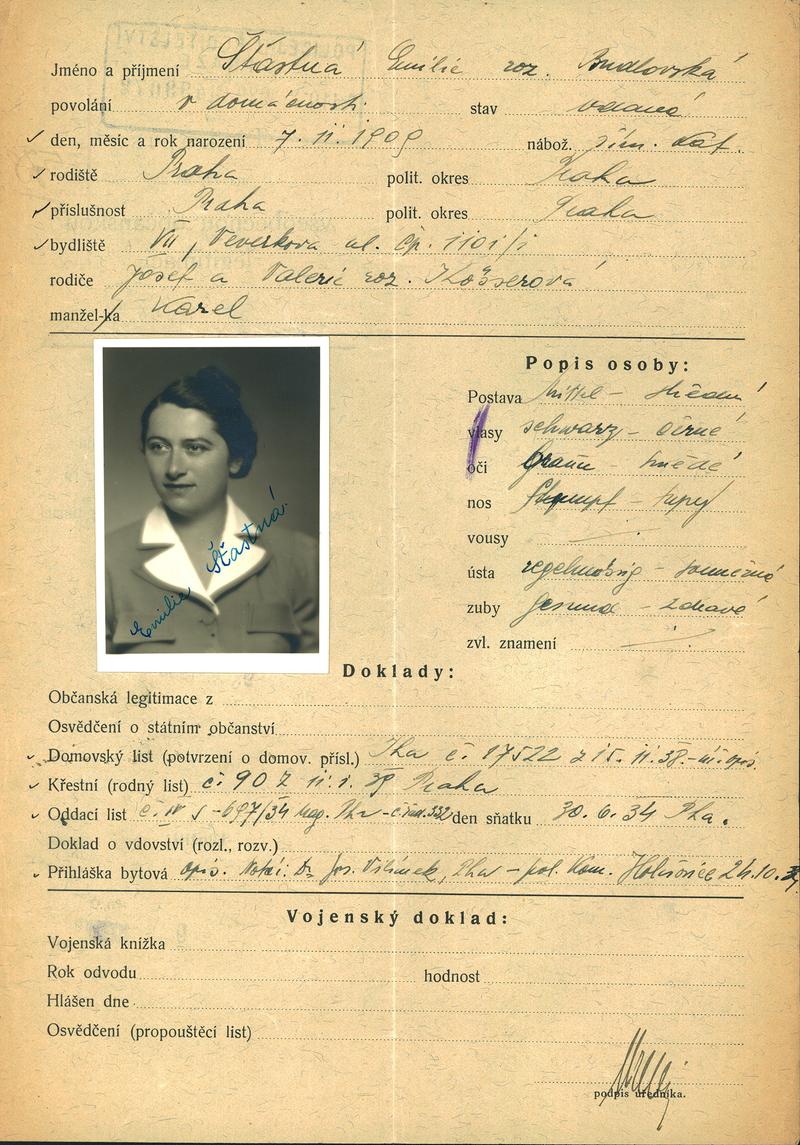 Jméno a příjmení Šťastná Emilie roz. Budlovská
povolání v domácnosti stav vdaná
den, měsíc a rok narození 7. 11. 1909 nábož. řím. kat.
rodiště Praha polit. okres Praha
příslušnost Praha polit. okres Praha
bydliště VII, Veverkova ul. čp. 1101/
rodiče Josef a Valerie roz.
manžel-ka Karel
Popis osoby:
Postava Mittel - střední
vlasy schwarz - černé
oči braun - hnědé
nos Stumpf - tupý
vousy
ústa regelmässig - souměrná
zuby gesund - zdravé
zvl. znamení
Emilie Šťastná
Doklady:
Občanská legitimace z
Osvědčení o státním občanství
Domovský list (potvrzení o domov. přísl.) Pha č. 17522 z 15. 11. 38. - opis.
Křestní (rodný list) č. 90 z 11. 1. 39 Praha
Oddací list č. IV s - 697/34 mag. Pha - 332 den sňatku 30. 6. 34 Pha.
Doklad o vdovství (rozl., rozv.)
Přihláška bytová opis. Dr Jos. Vilímek, Pha - pol. kom. Holešovice 24. 10.
Vojenský doklad:
Vojenská knížka
Rok odvodu hodnost
Hlášen dne
Osvědčení (propouštěcí list)
podpis úředníka.